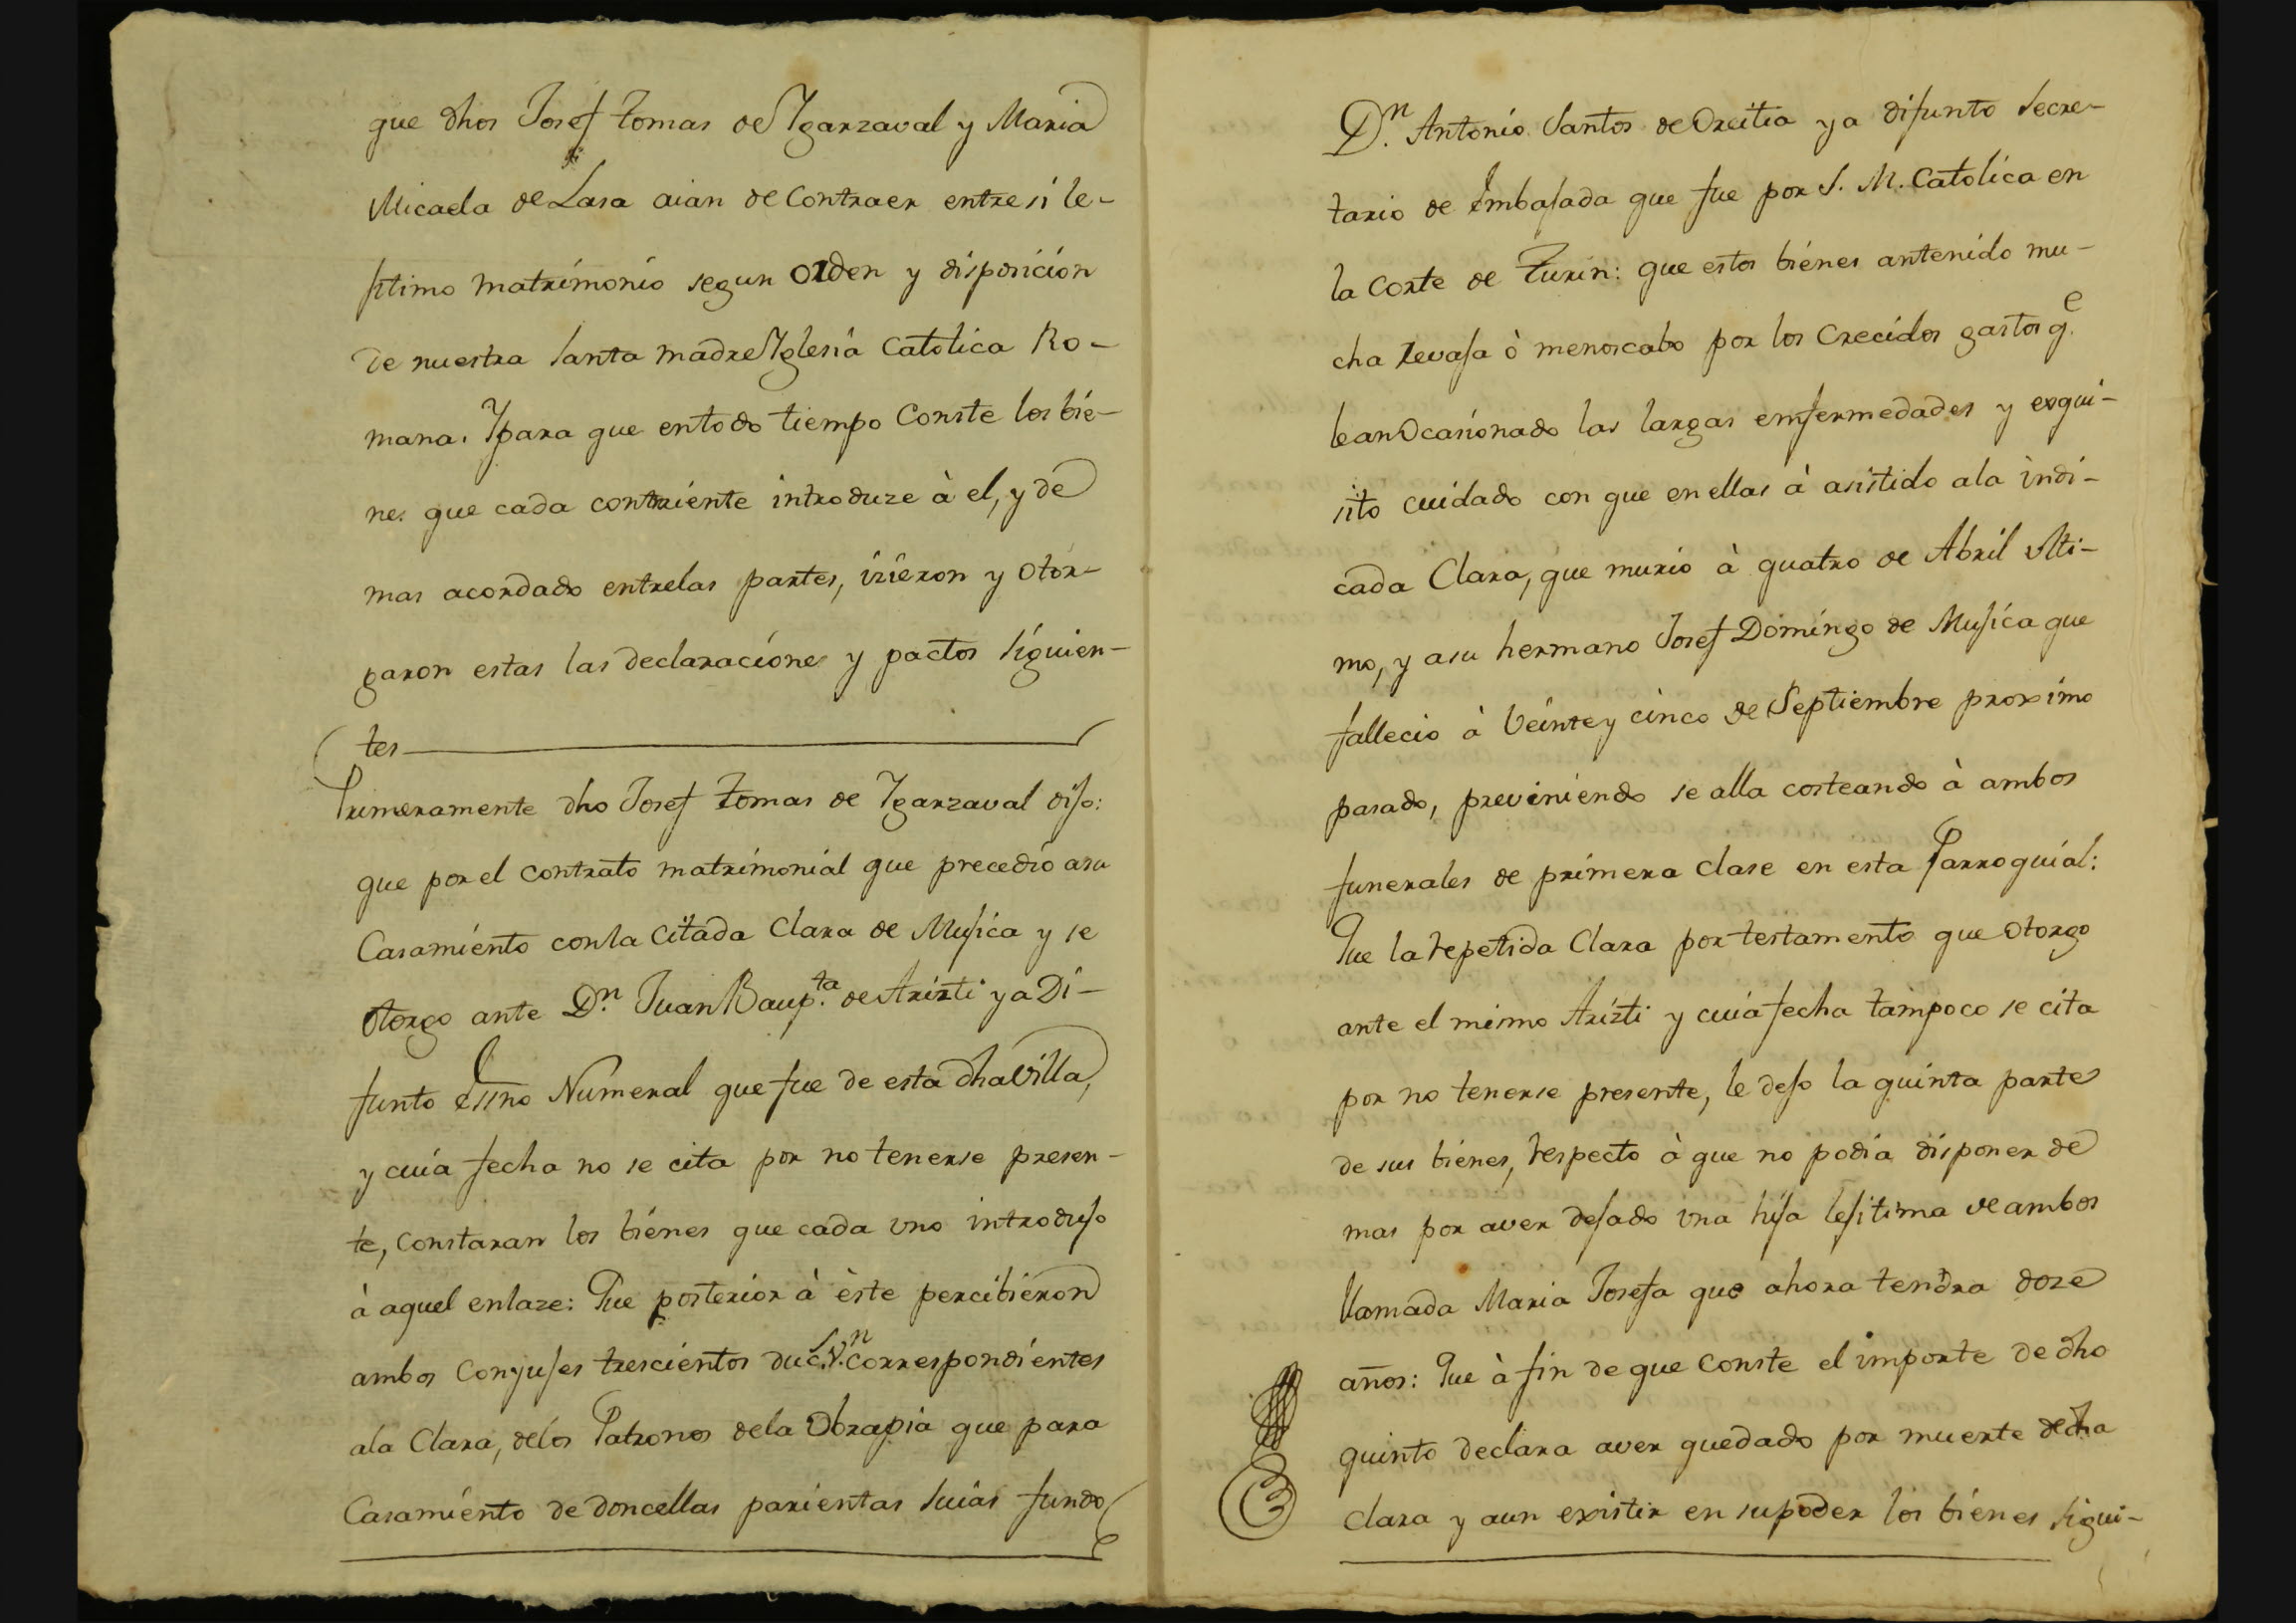 que dhos Josef tomas de Ygarzaval y Maria
Micaela de Lasa aian de Contraer entre si le-
jitimo matrimonio segun orden y disposicion
de nuestra Santa madre Yglesia Catolica Ro-
mana. Y para que entodo tiempo Conste los bie-
nes que cada contraiente introduze à el, y de
mas acordado entrelas partes, izieron y otor-
garon estas las declaraciones y pactos siguien-
tes
Primeramente dho Josef tomas de Ygarzaval dijo:
que por el contrato matrimonial que precedio asu
Casamiento conla Citada Clara de Mujica y se
Otorgo ante Dn. Juan Baupta. de Arizti ya Di-
funto Essno Numeral que fue de esta dha Villa,
y cuia fecha no se cita por no tenerse presen-
te, constaran los bienes que cada vno introdujo
à aquel enlaze: Que posterior à èste percibieron
ambos Conjujes trescientos duc.s V.n correspondientes
ala Clara, delos Patronos dela Obrapia que para
Casamiento de doncellas parientas suias fundo
Dn. Antonio Santos de Orcitia ya difunto Secre-
tario de Embajada que fue por S. M. Catolica en
la Corte de Turin: que estos bienes antenido mu-
cha revaja ò menoscabo por los Crecidos gastos qe.
lean Ocasionado las largas enfermedades y exqui-
sito cuidado con que en ellas à asistido ala indi-
cada Clara, que murio à quatro de Abril vlti-
mo, y asu hermano Josef Domingo de Mujica que
fallecio à Veinte y cinco de Septiembre proximo
pasado, previniendo se alla costeando à ambos
funerales de primera clase en esta Parroquial:
Que la repetida Clara por testamento que Otorgo
ante el mismo Arizti y cuia fecha tampoco se cita
por no tenerse presente, le dejo la quinta parte
de sus bienes, respecto à que no podia disponer de
mas por aver dejado vna hija lejitima de ambos
llamada Maria Josefa que ahora tendra doze
años: Que à fin de que conste el importe de dho
quinto declara aver quedado por muerte de dha
Clara y aun existir en supoder los bienes sigui-